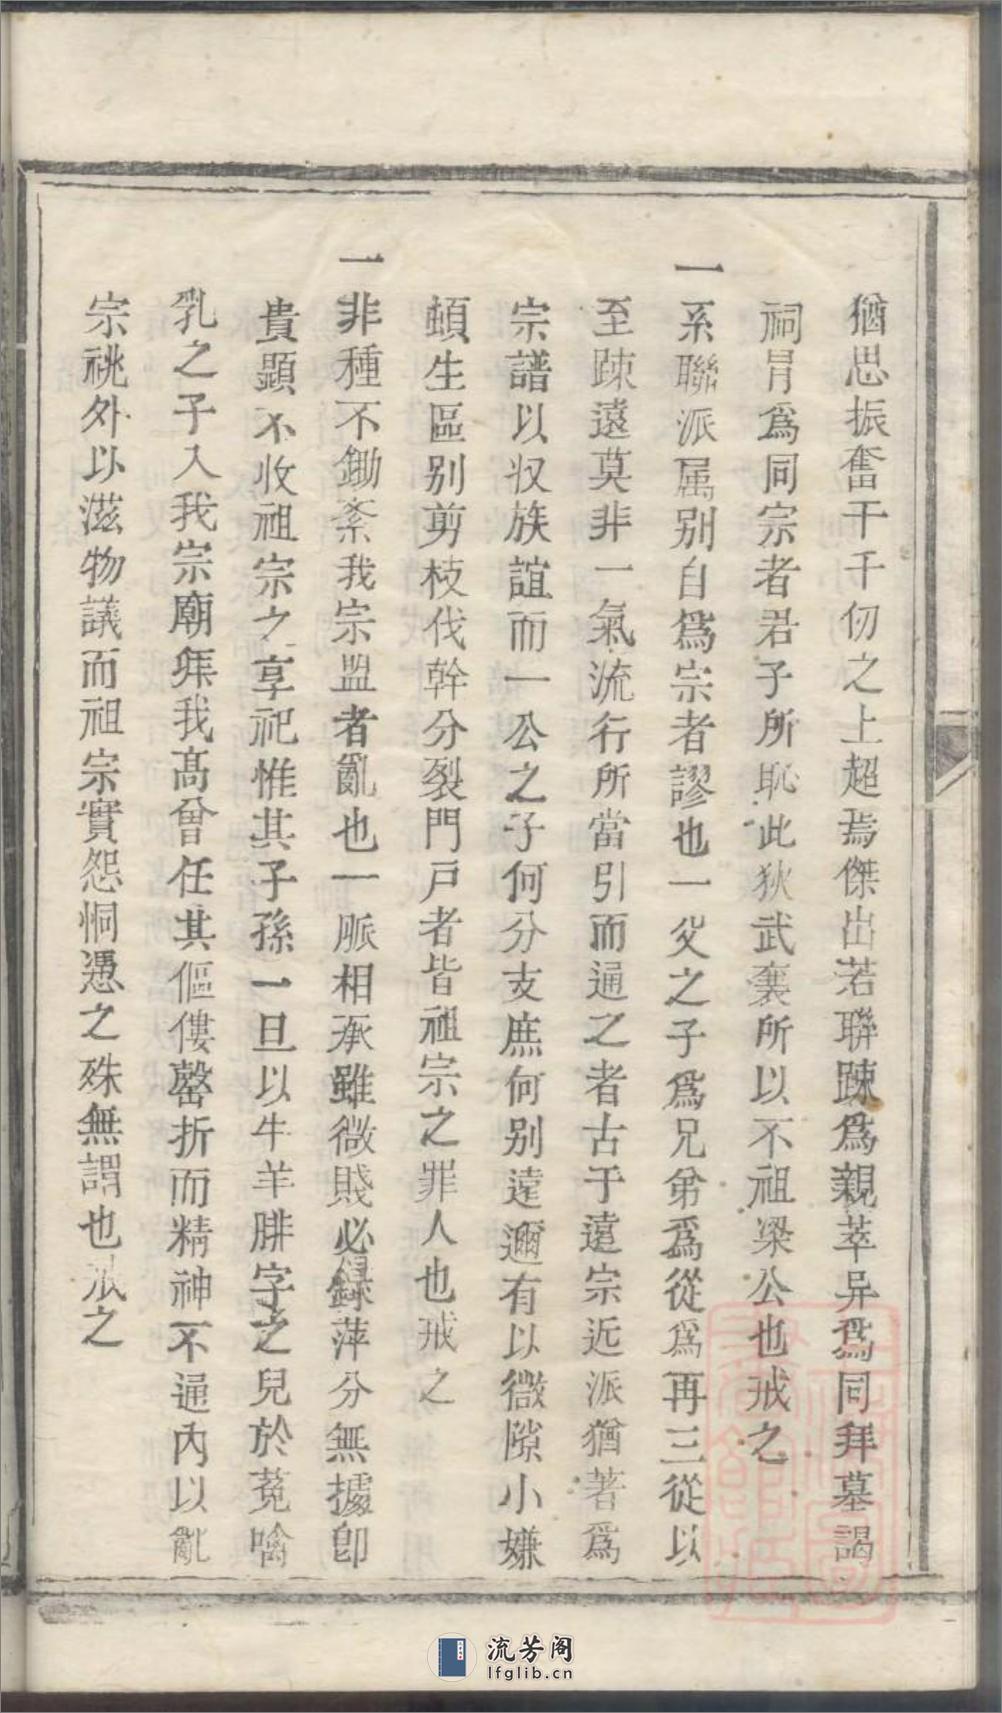 猶思振奮千千仞之上超焉傑出若聯踈爲親萃异爲同拜墓謁
祠冐爲同宗者君子所恥此狄武襄所以不祖梁公也戒之
一系聯派属别自爲宗者謬也一父之子爲兄弟爲從爲再三從以
至踈遠莫非一氣流行所當引而通之者古于遠宗近派猶著爲
宗譜以収族誼而一公之子何分支庶何别遠邇有以微隙小嫌
頓生區别剪枝伐幹分裂門戸者皆祖宗之罪人也戒之
一非種不鋤紊我宗盟者亂也一脈相承雖微賤必錄萍分無據卽
貴顯不收祖宗之享祀惟其子孫一旦以牛羊腓字之兒於菟噏
乳之子入我宗廟拜我髙曾任其傴僂罄折而精神不通內以亂
宗祧外以滋物議而祖宗實怨恫憑之殊無謂也戒之
流芳阁
lfglib.cn